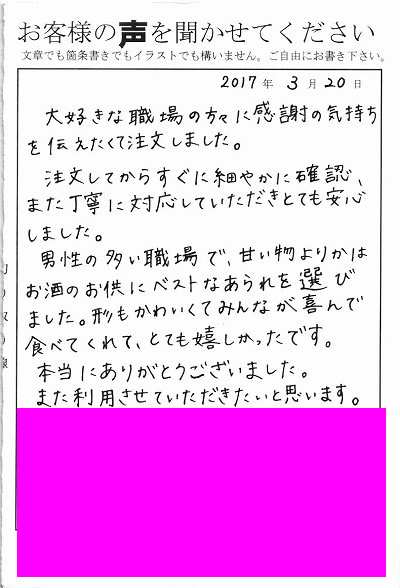 お客様の声を聞かせてください
文章でも箇条書きでもイラストでも構いません。ご自由にお書き下さい。
2017年 3月 20日
大好きな職場の方々に感謝の気持ち
を伝えたくて注文しました。
注文してからすぐに細やかに確認、
また丁寧に対応していただきとても安心
しました。
男性の多い職場で、甘い物よりかは
お酒のお供にベストなあられを選び
ました。形もかわいくてみんなが喜んで
食べてくれて、とても嬉しかったです。
本当にありがとうございました。
また利用させていただきたいと思います。